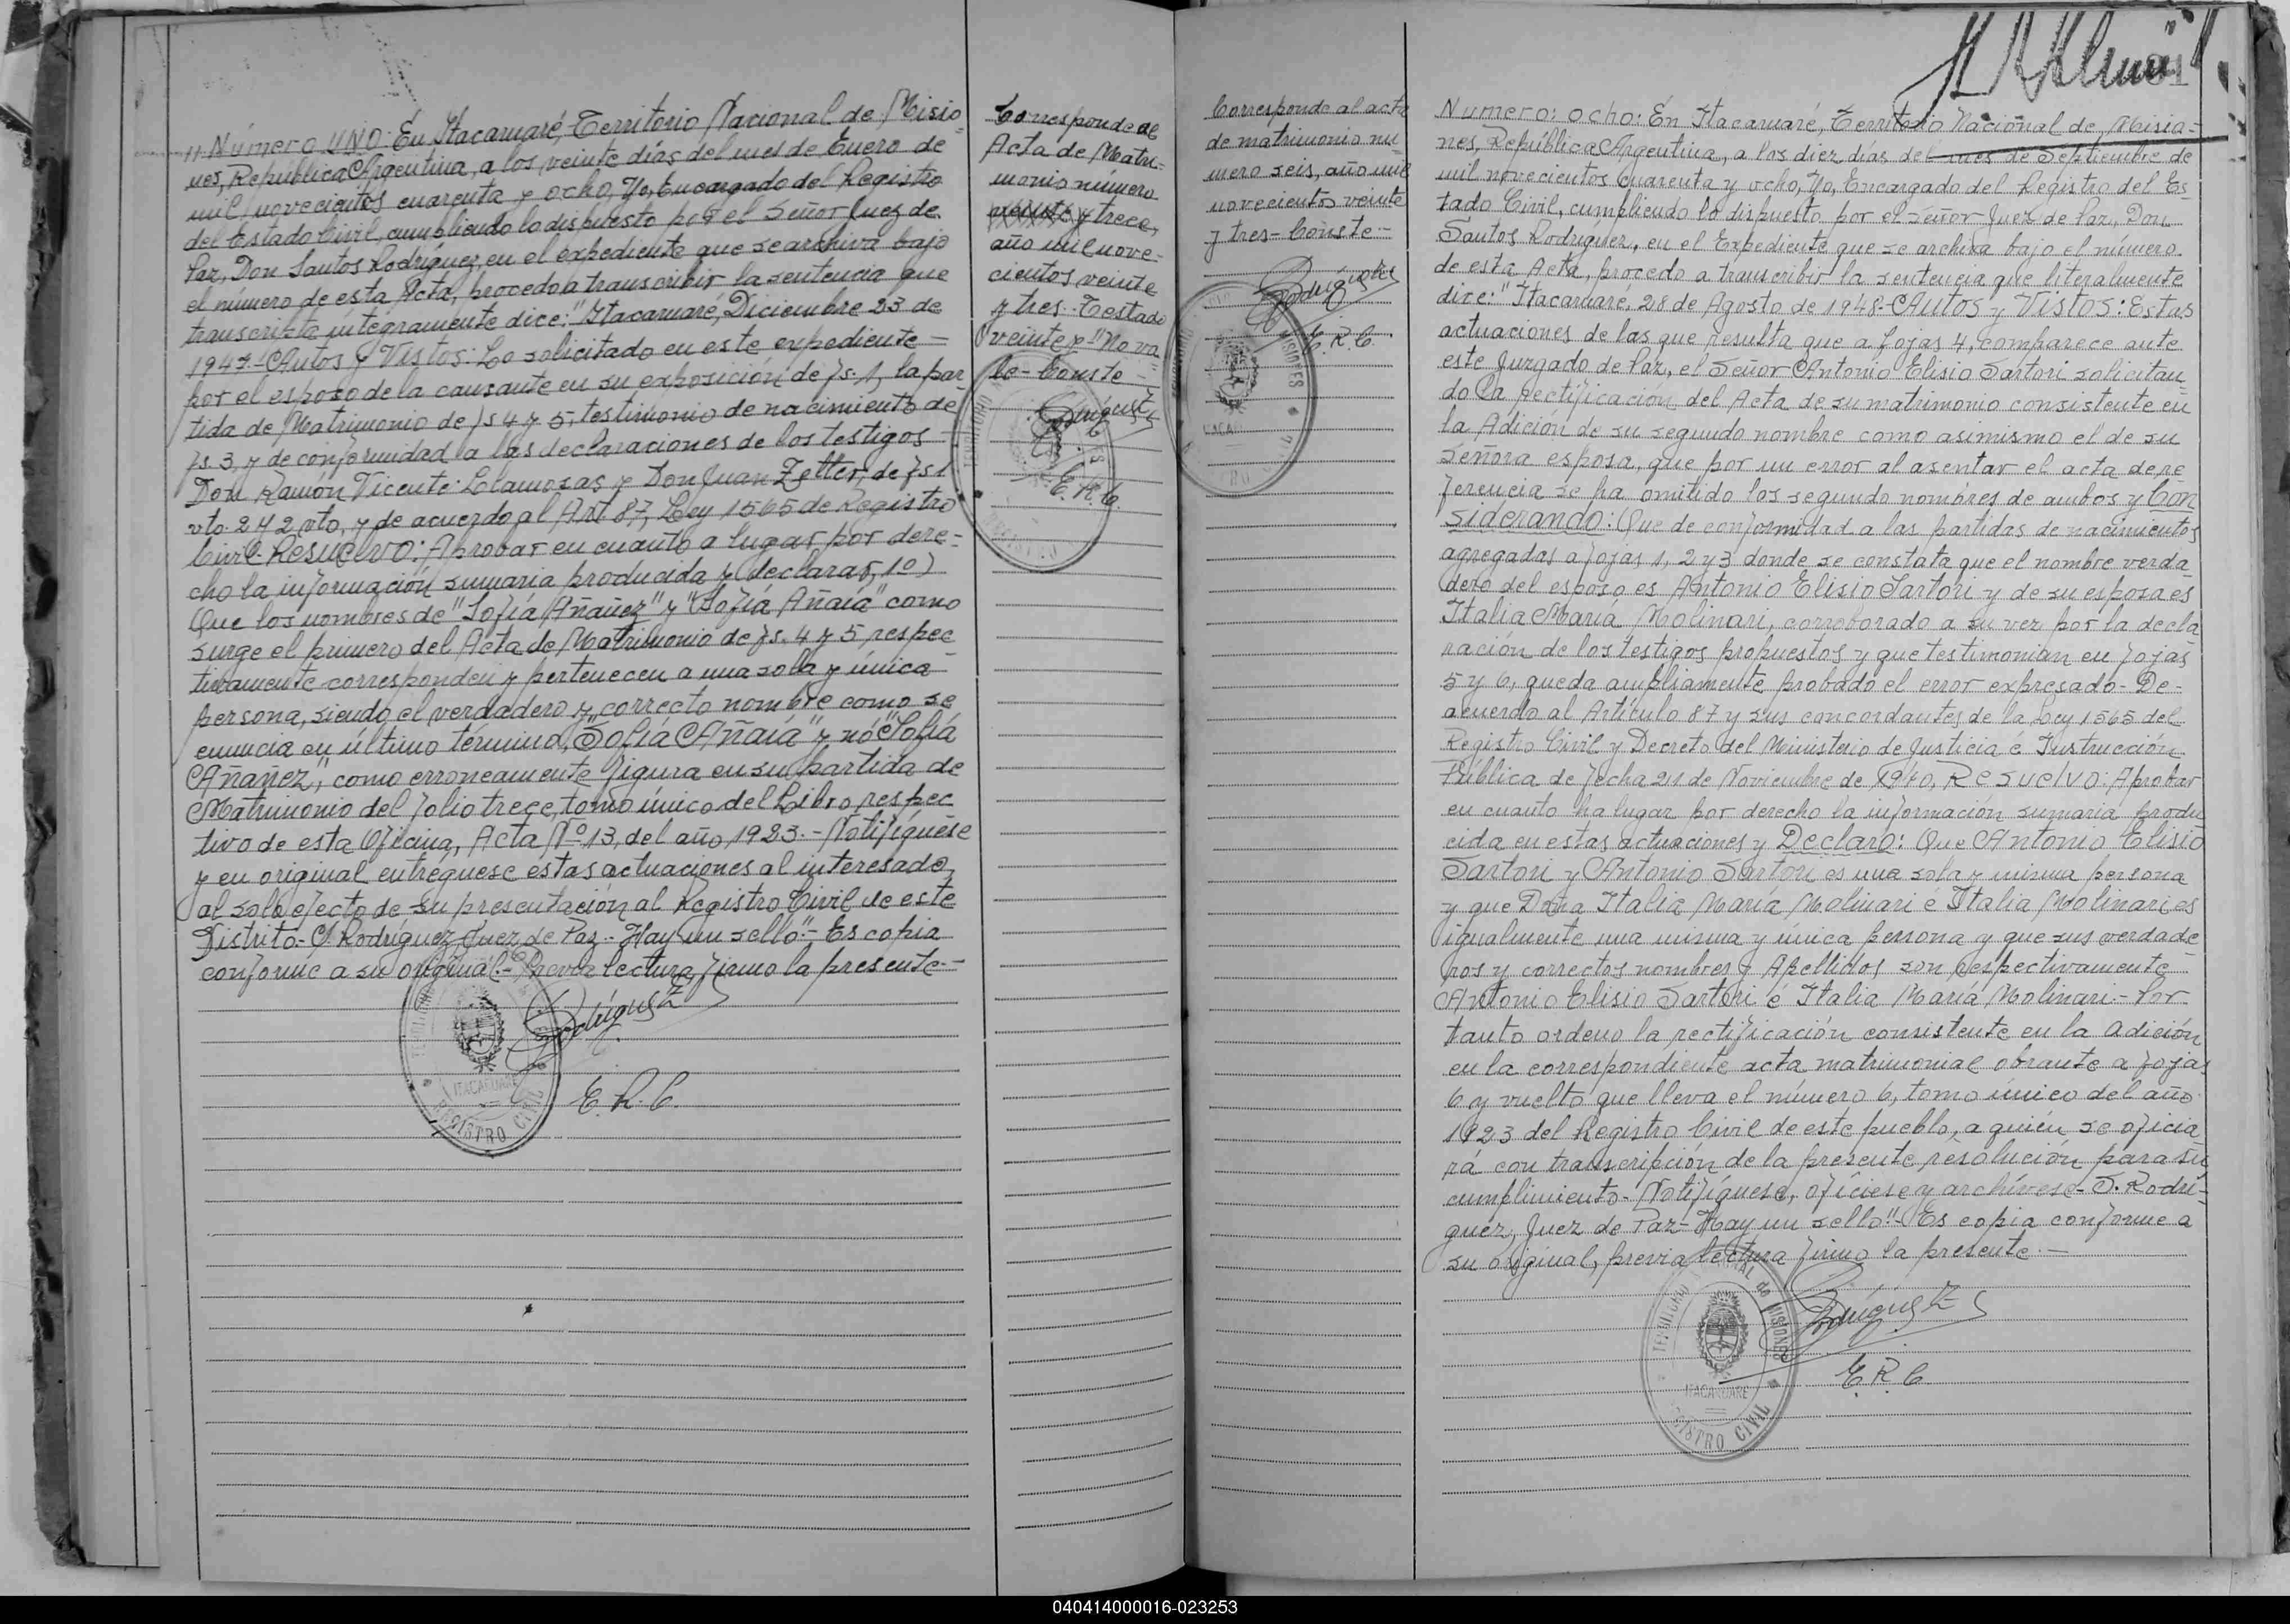 Número UNO: En Itacaruaré, Territorio Nacional de Misio=
nes, República Argentina, a los veinte días del mes de Enero de
mil novecientos cuarenta y ocho, Yo, Encargado del Registro
del Estado Civil, cumpliendo lo dispuesto por el Señor Juez de
Paz, Don Santos Rodríguez, en el expediente que se archiva bajo
el número de esta Acta, procedo a transcribir la sentencia que
transcripta íntegramente dice: "Itacaruaré, Diciembre 23 de
1947.- Autos y Vistos: Lo solicitado en este expediente =
por el esposo de la causante en su exposición de fs. 1, la par-
tida de Matrimonio de fs 4 y 5, testimonio de nacimiento de
fs. 3, y de conformidad a las declaraciones de los testigos
Don Ramón Vicente Llamosas y Don Juan Zetter, de fs 1
vto. 2 y 2 vto, y de acuerdo al Art. 87, Ley 1565 de Registro
Civil- Resuelvo: Aprobar en cuanto a lugar por dere=
cho la información sumaria producida y declarar, 1º)
Que los nombres de "Sofía Añañez" y "Sofía Añaiá" como
surge el primero del Acta de Matrimonio de fs. 4 y 5, respec
tivamente corresponden y pertenecen a una sola y única
persona, siendo el verdadero y correcto nombre como se
enuncia en último término, "Sofía Añaiá" y nó "Sofía
Añañez," como erroneamente figura en su partida de
Matrimonio del folio trece, tomo único del Libro respec
tivo de esta Oficina, Acta Nº 13, del año 1923.- Notifíquese
y en original entréguese estas actuaciones al interesado
al solo efecto de su presentación al Registro Civil de este
Distrito.- S. Rodríguez, Juez de Paz.- Hay un sello".- Es copia
conforme a su original.- Previa lectura, firmo la presente.-
Rodríguez
E. R. C.
TERRITORIO
ITACARUARE
REGISTRO CIVIL
Corresponde al
Acta de Matri-
monio número
veinte y trece,
año mil nove-
cientos veinte
y tres.- Testado
"veinte y" No va
le - Conste -
Rodríguez
E. R. C.
Corresponde al acta
de matrimonio nú-
mero seis, año mil
novecientos veinte
y tres - Conste -
Rodríguez
E. R. C.
MISIONES
Número: ocho: En Itacaruaré, Territorio Nacional de Misio=
nes, República Argentina, a los diez días del mes de Septiembre de
mil novecientos cuarenta y ocho, Yo, Encargado del Registro del Es-
tado Civil, cumpliendo lo dispuesto por el Señor Juez de Paz, Don
Santos Rodríguez, en el Expediente que se archiva bajo el número
de esta Acta, procedo a transcribir la sentencia que literalmente
dice: "Itacaruaré, 28 de Agosto de 1948- Autos y Vistos: Estas
actuaciones de las que resulta que a fojas 4, comparece ante
este Juzgado de Paz, el Señor Antonio Elisio Sartori solicitan
do la rectificación del Acta de su matrimonio consistente en
la Adición de su segundo nombre como asimismo el de su
Señora esposa, que por un error al asentar el acta de re
ferencia se ha omitido los segundo nombres de ambos y Con
siderando: Que de conformidad a las partidas de nacimientos
agregadas a fojas 1, 2 y 3 donde se constata que el nombre verda-
dero del esposo es Antonio Elisio Sartori y de su esposa es
Italia María Molinari, corroborado a su vez por la decla
ración de los testigos propuestos y que testimonian en fojas
5 y 6, queda ampliamente probado el error expresado- De-
acuerdo al Artículo 87 y sus concordantes de la Ley 1565 del
Registro Civil y Decreto del Ministerio de Justicia é Instrucción
Pública de fecha 21 de Noviembre de 1940, Resuelvo: Aprobar
en cuanto ha lugar por derecho la información sumaria produ
cida en estas actuaciones y Declaro: Que Antonio Elisio
Sartori y Antonio Sartori es una sola y misma persona
y que Doña Italia María Molinari é Italia Molinari es
igualmente una misma y única persona y que sus verdade
ros y correctos nombres y Apellidos son respectivamente
Antonio Elisio Sartori é Italia María Molinari.- Por
tanto ordeno la rectificación consistente en la adición
en la correspondiente acta matrimonial obrante a fojas
6 y vuelto que lleva el número 6, tomo único del año
1923 del Registro Civil de este pueblo, a quién se oficia
rá con transcripción de la presente resolución para su
cumplimiento- Notifíquese, ofíciese y archívese- S. Rodrí-
guez, Juez de Paz- Hay un sello".- Es copia conforme a
su original, previa lectura firmo la presente.-
Rodríguez
E. R. C.
TERRITORIO NACIONAL de MISIONES
ITACARUARE
REGISTRO CIVIL
040414000016-023253